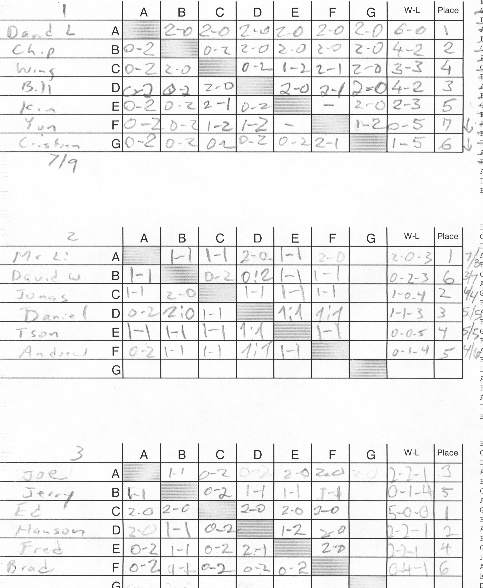 1
A B C D E F G W-L Place
David L A 2-0 2-0 2-0 2-0 2-0 2-0 6-0 1
Chip B 0-2 0-2 2-0 2-0 2-0 2-0 4-2 2
Wing C 0-2 2-0 0-2 1-2 2-1 2-0 3-3 4
Bill D 0-2 0-2 2-0 2-0 2-1 2-0 4-2 3
Ken E 0-2 0-2 2-1 0-2 - 2-0 2-3 5
Yun F 0-2 0-2 1-2 1-2 - 1-2 0-5 7 ↓
G 0-2 0-2 0-2 0-2 0-2 2-1 1-5 6 ↓
7/9
2
A B C D E F G W-L Place
Mr Li A 1-1 1-1 2-0 1-1 2-0 2-0-3 1
David W B 1-1 0-2 0:2 1-1 1-1 0-2-3 6
Jonas C 1-1 2-0 1-1 1-1 1-1 1-0-4 2
Daniel D 0-2 2:0 1-1 1:1 1:1 1-1-3 3
Tson E 1-1 1-1 1-1 1:1 1-1 0-0-5 4
Andrew F 0-2 1-1 1-1 1:1 1-1 0-1-4 5
G
3
A B C D E F G W-L Place
Joe A 1-1 0-2 0-2 2-0 2-0 2-2-1 3
Jerry B 1-1 0-2 1-1 1-1 1-1 0-1-4 5
Ed C 2-0 2-0 2-0 2-0 2-0 5-0-0 1
Hanson D 2-0 1-1 0-2 1-2 2-0 2-2-1 2
Fred E 0-2 1-1 0-2 2-1 2-0 2-2-1 4
Brad F 0-2 1-1 0-2 0-2 0-2 0-4-1 6